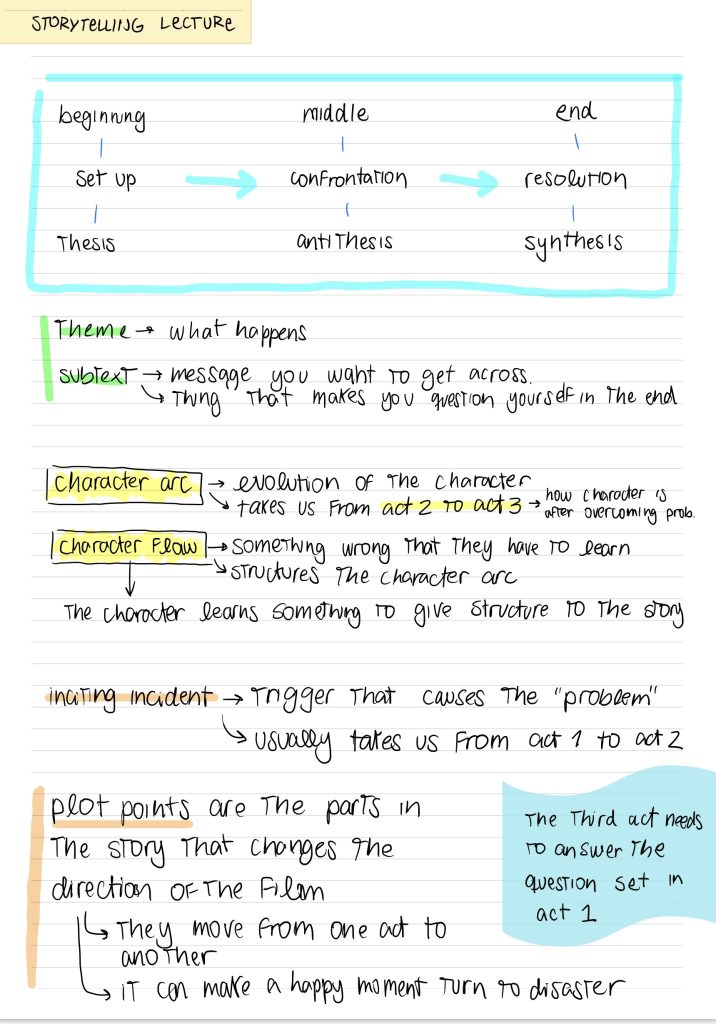 STORYTELLING LECTURE
beginning middle end
set up → confrontation → resolution
Thesis antiThesis synthesis
Theme → what happens
subtext → message you want to get across.
↳ Thing that makes you question yourself in the end
character arc → evolution of the character
↘ takes us from act 2 to act 3 → how character is
after overcoming prob.
character flaw → something wrong that they have to learn
↘ structures the character arc
The character learns something to give structure to the story
inciting incident → Trigger that causes the "problem"
↳ usually takes us from act 1 to act 2
plot points are the parts in
the story that changes the
direction of the film
↳ they move from one act to
another
↳ it can make a happy moment turn to disaster
The Third act needs
to answer the
question set in
act 1